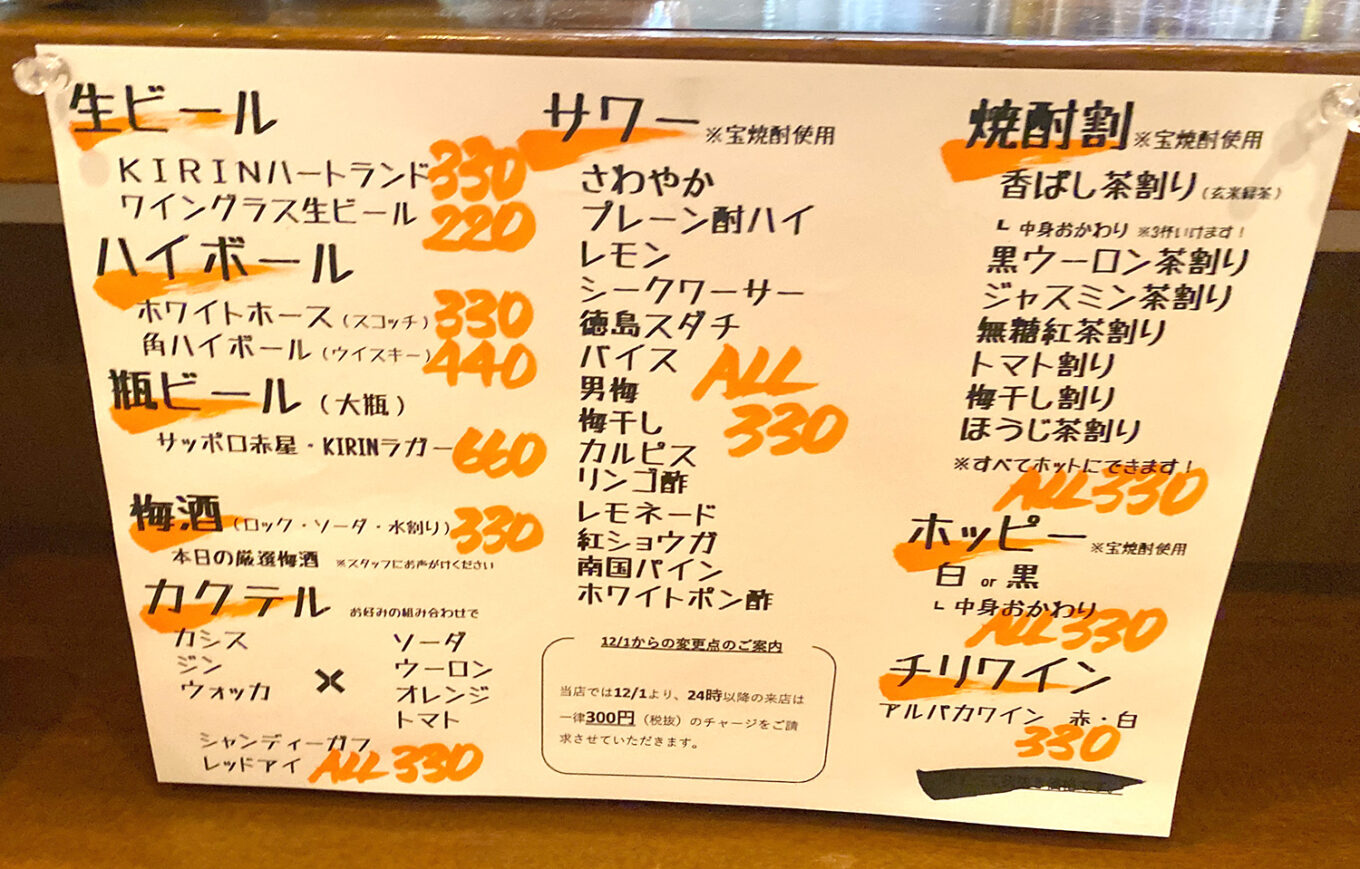 生ビール
KIRINハートランド 330
ワイングラス生ビール 220
ハイボール
ホワイトホース(スコッチ) 330
角ハイボール(ウイスキー) 440
瓶ビール(大瓶)
サッポロ赤星・KIRINラガー 660
梅酒(ロック・ソーダ・水割り) 330
本日の厳選梅酒 ※スタッフにお声がけください
カクテル お好みの組み合わせで
カシス ソーダ
ジン ウーロン
ウォッカ × オレンジ
トマト
シャンディーガフ
レッドアイ ALL 330
サワー ※宝焼酎使用
さわやか
プレーン酎ハイ
レモン
シークワーサー
徳島スダチ
バイス
男梅
梅干し
カルピス
リンゴ酢
レモネード
紅ショウガ
南国パイン
ホワイトポン酢
ALL
330
12/1からの変更点のご案内
当店では12/1より、24時以降の来店は
一律300円(税抜)のチャージをご請
求させていただきます。
焼酎割 ※宝焼酎使用
香ばし茶割り(玄米緑茶)
┗ 中身おかわり ※3杯いけます!
黒ウーロン茶割り
ジャスミン茶割り
無糖紅茶割り
トマト割り
梅干し割り
ほうじ茶割り
※すべてホットにできます!
ALL 330
ホッピー ※宝焼酎使用
白 or 黒
┗ 中身おかわり
ALL 330
チリワイン
アルパカワイン 赤・白
330